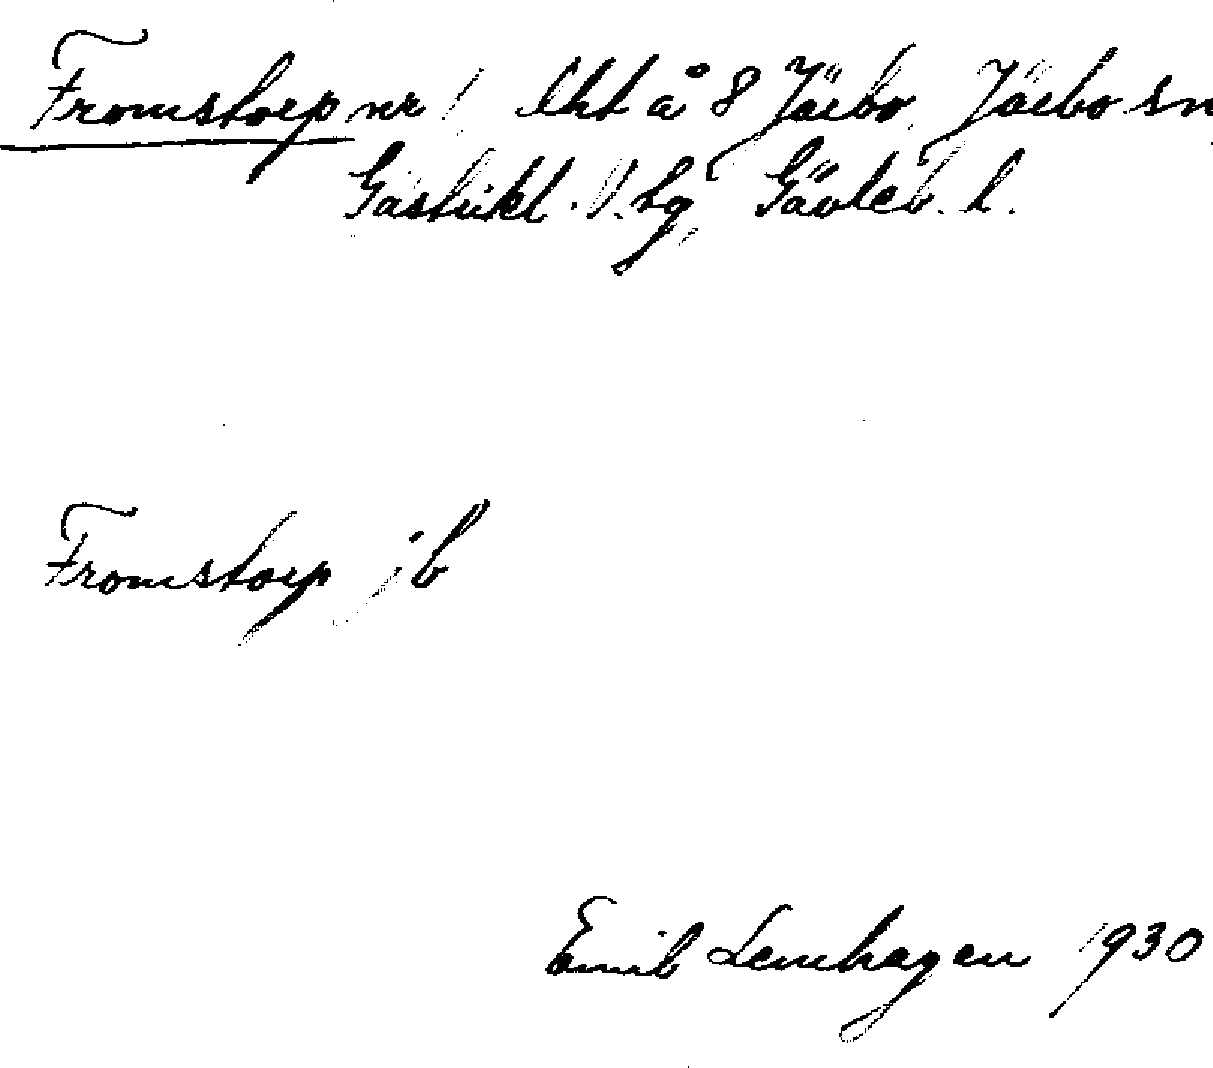 Fromstorp nr 1 lht å 8 Järbo, Järbo sn
Gästrikl. V. tg, Gävleb. l.
Fromstorp jb
Emil Lemhagen 1930